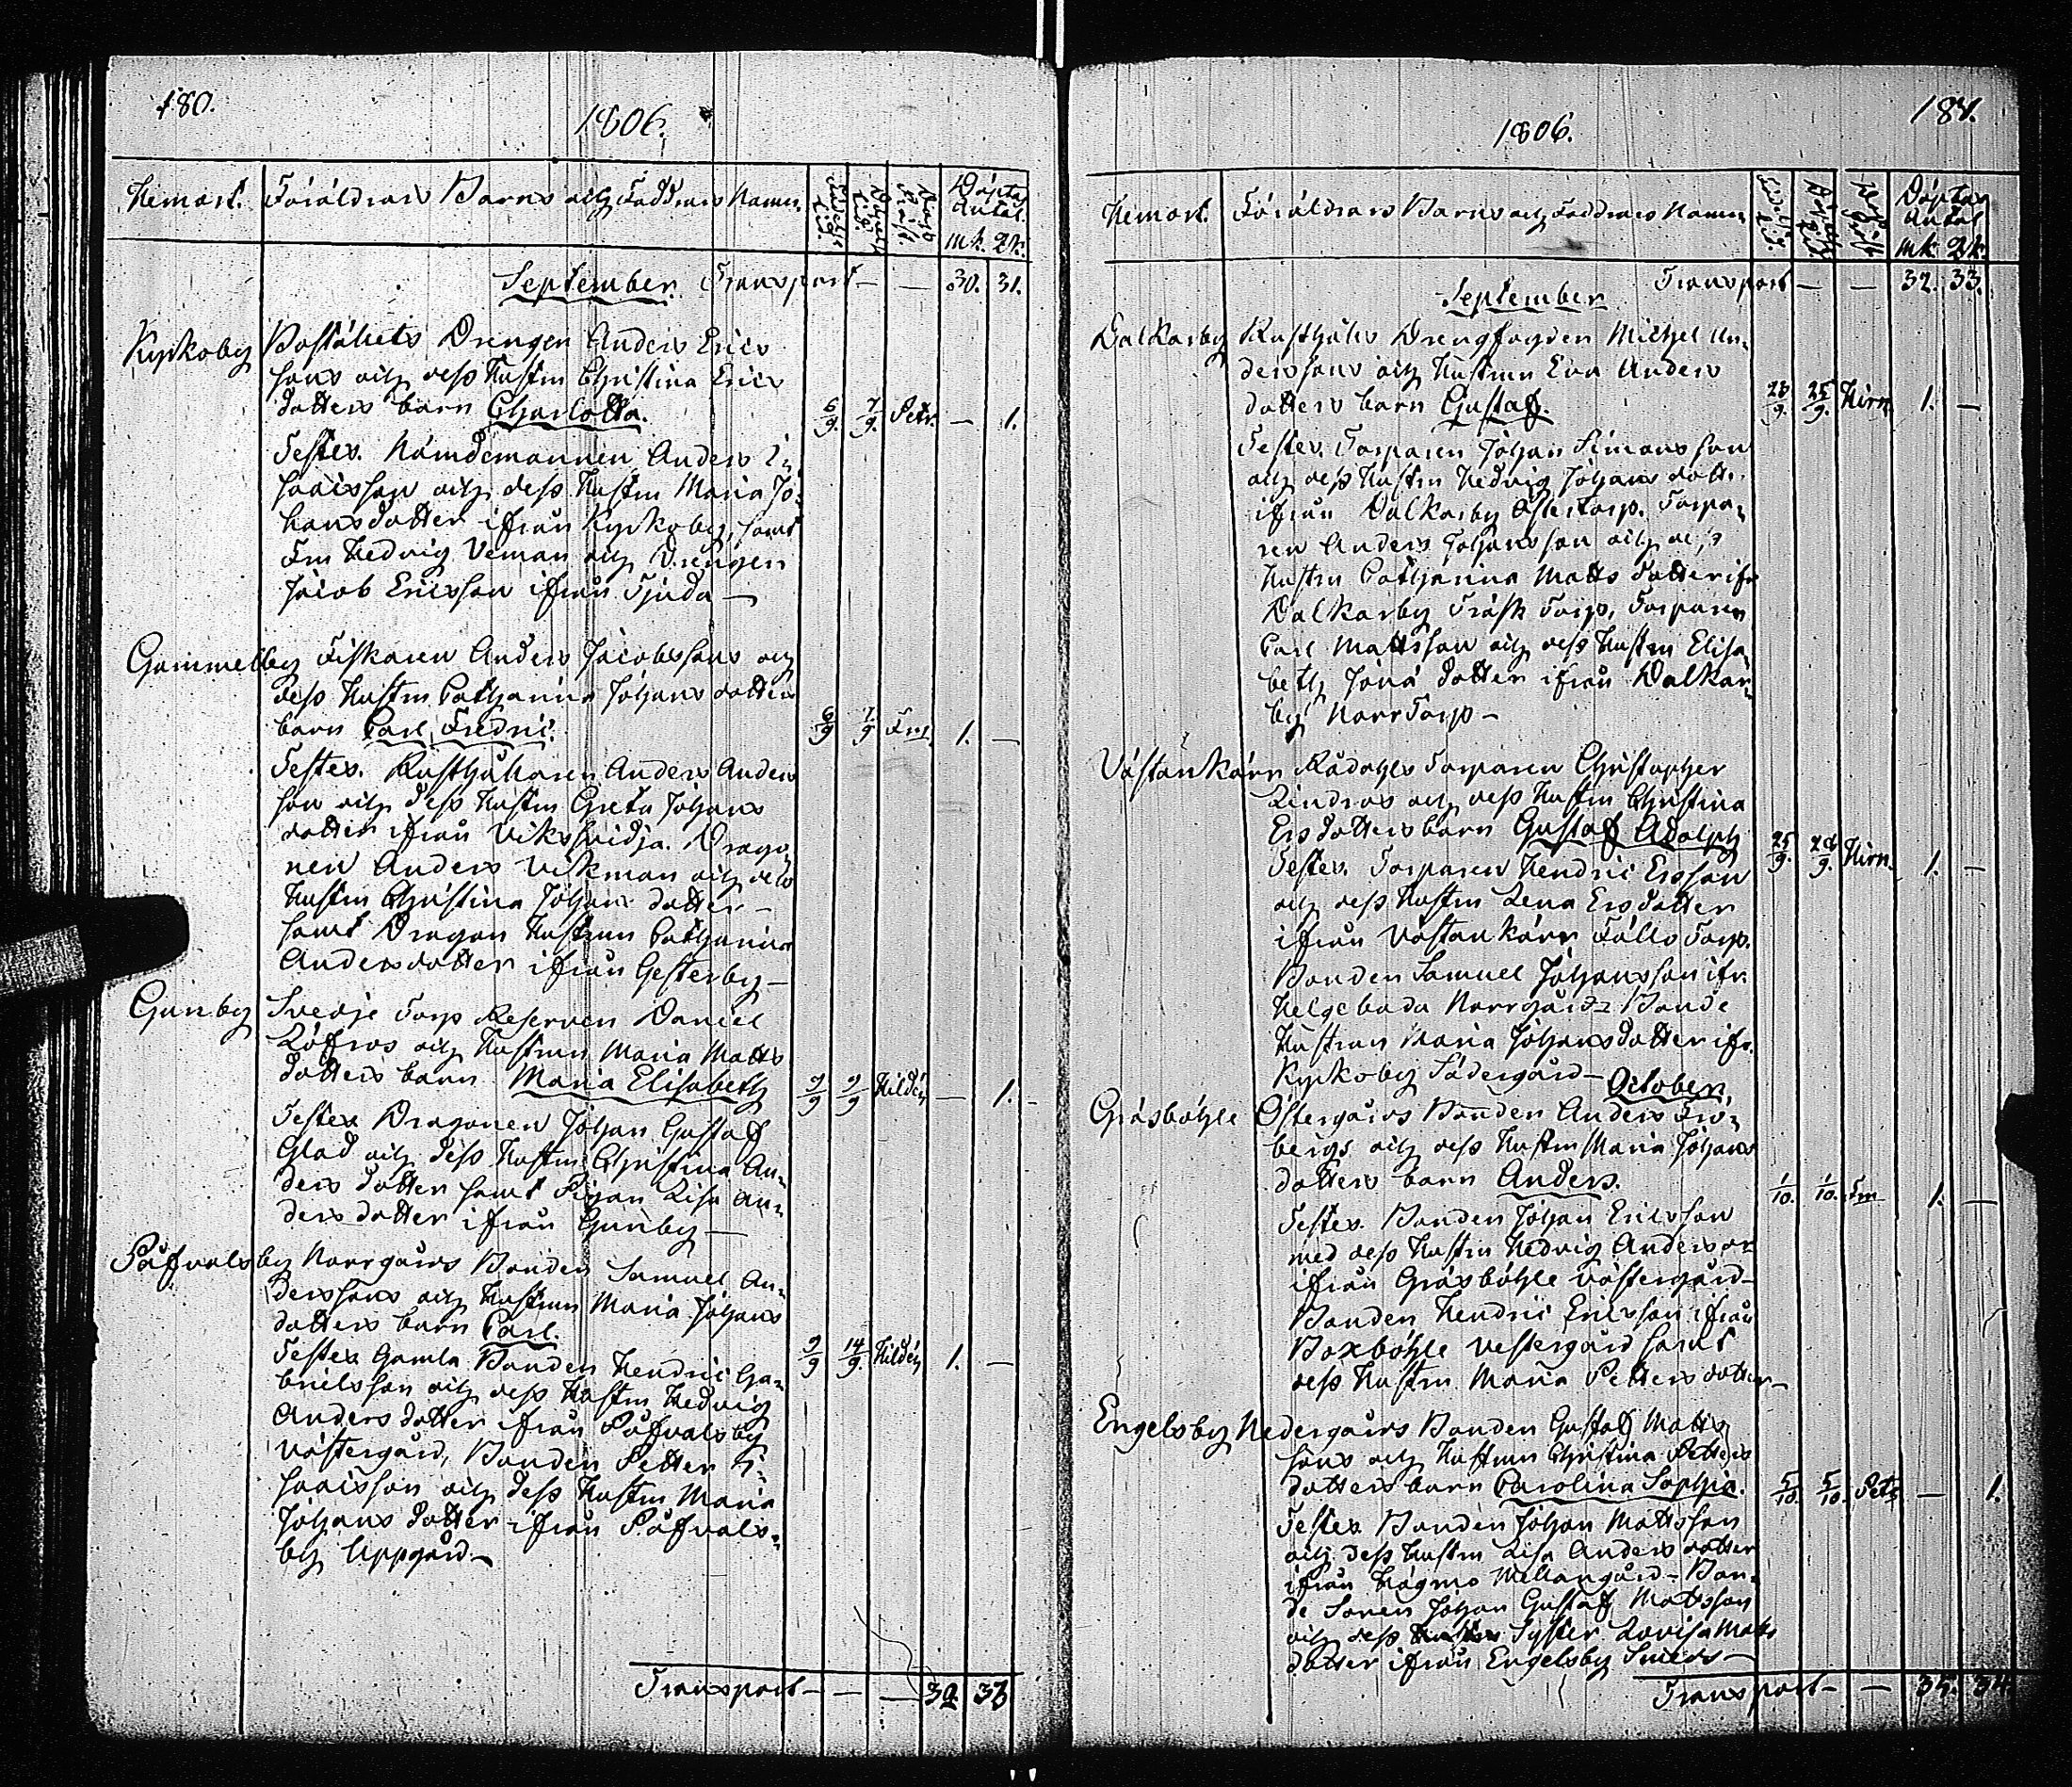 180.
1806.
Hemort. Föräldrars Barns och Faddrars Namn. Födelse Dag. Döpelse Dag. Döpt Präst. Döptas Antal.
mk. qk.
September. Transport — — 30. 31.
Kyrkoby Boställets Drengen Anders Erics
sons och dess Hustru Christina Erics
dotters barn Charlotta. 6/9. 7/9. Petr. — 1.
Testes. Nämdemannen Anders I-
saacsson och dess Hustru Maria Jo-
hansdotter ifrån Kyrkoby, samt
Fru Hedvig Veman och Drengen
Jacob Ericsson ifrån Tjuda —
Gammelby Fiskaren Anders Jacobssons och
dess Hustru Catharina Johans dotters
barn Carl Fredric. 6/9 7/9 Frs. 1. —
Testes. Rusthållaren Anders Anders
son och dess Hustru Greta Johans
dotter ifrån Vikssvidja. Drago-
nen Anders Vikman och dess
Hustru Christina Johans dotter —
samt Dragon Hustrun Catharina
Andersdotter ifrån Gesterby —
Gunby Svedje Torp Reserven Daniel
Löfros och Hustrun Maria Matts
dotters barn Maria Elisabeth 9/9 9/9 Hildén — 1.
Testes Dragonen Johan Gustaf
Glad och dess Hustru Christina An-
ders dotter samt Pigan Lisa An-
ders dotter ifrån Gunby —
Påfvalsby Norrgårds Bonden Samuel An-
derssons och Hustrun Maria Johans
dotters barn Carl. 9/9 14/9. Hildén 1. —
Testes Gamla Bonden Hendric Ga-
brielsson och dess Hustru Hedvig
Anders dotter ifrån Påfvalsby
Västergård, Bonden Petter I-
saacsson och dess Hustru Maria
Johans dotter ifrån Påfvals-
by Uppgård —
Transport — — — 32. 33
181.
1806.
Hemort. Föräldrars Barns och Faddrars Namn Döptas Antal
mk. qk.
September Transport — — 32. 33.
Dalkarby Rusthålls Drengfogden Michel An-
derssons och Hustrun Eva Anders
dotters barn Gustaf. 23/9. 25/9. Hirn. 1. —
Testes. Torparen Johan Simonsson
och dess Hustru Hedvig Johans dott.
ifrån Dalkarby Östertorp. Torpa-
ren Anders Johansson och dess
Hustru Catharina Matts dotter ifr
Dalkarby Träsk Torp, Torparen
Carl Mattsson och dess Hustru Elisa-
beth Jona dotter ifrån Dalkar-
by Norr Torp —
Västankärr Rådahls Torparen Christopher
Lindros och dess Hustru Christina
Ersdotters barn Gustaf Adolph 25/9. 28/9. Hirn. 1. —
Testes. Torparen Hendric Ersson
och dess Hustru Lena Ersdotter
ifrån Västankärr Fälls Torp.
Bonden Samuel Johansson ifr.
Helgeboda Norrgård — Bonde
Hustrun Maria Johansdotter ifr.
Kyrkoby Södergård —
October.
Gräsböhle Östergårds Bonden Anders Fro-
bergs och dess Hustru Maria Johans
dotters barn Anders. 1/10. 1/10. Frs 1. —
Testes. Bonden Johan Ericsson
med dess Hustru Hedvig Anders dr
ifrån Gräsböhle västergård —
Bonden Hendric Ericsson ifrån
Boxböhle Vestergård samt
dess Hustru Maria Petters dotter —
Engelsby Nedergårds Bonden Gustaf Matts
sons och Hustrun Christina Petters
dotters barn Carolina Sophia. 5/10. 5/10. Petr — 1.
Testes Bonden Johan Mattsson
och dess Hustru Lisa Anders dotter
ifrån Högmo Mellangård — Bon-
de Sonen Johan Gustaf Mattsson
och dess Syster Lovisa Matts
dotter ifrån Engelsby Smeds —
Transport — — 35. 34.